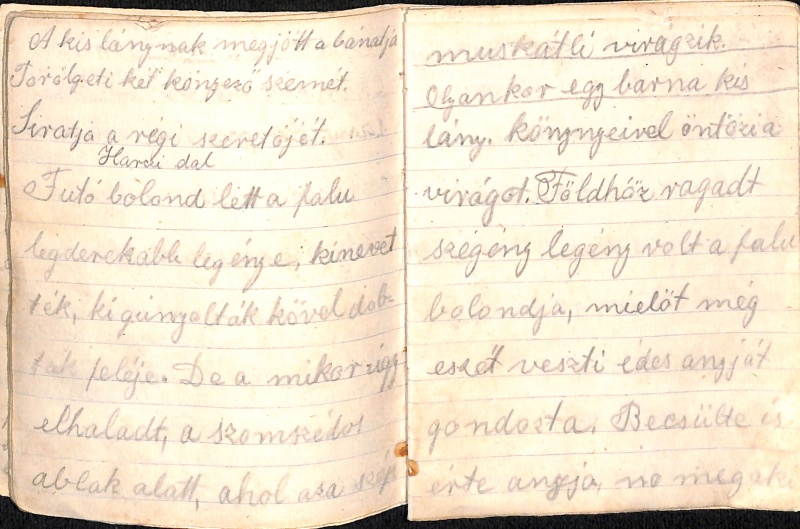 A kis lánynak megjött a bánatja
Törölgeti két könyező szemét.
Siratja a régi szeretőjét.
Harci dal
Futó bolond lett a falu
legderekabb legénye, kinevet
ték, kigúnyolták kővel dob
ták feléje. De a mikor így
elhaladt, a szomszédos
ablak alatt, ahol aza szép
muskátli virágzik.
Olyankor egy barna kis
lány. könynyeivel öntözia
virágot. Földhöz ragadt
szegény legény volt a falu
bolondja, mielőt még
eszét veszti édes anyját
gondozta. Becsülte is
érte anyja, no meg aki